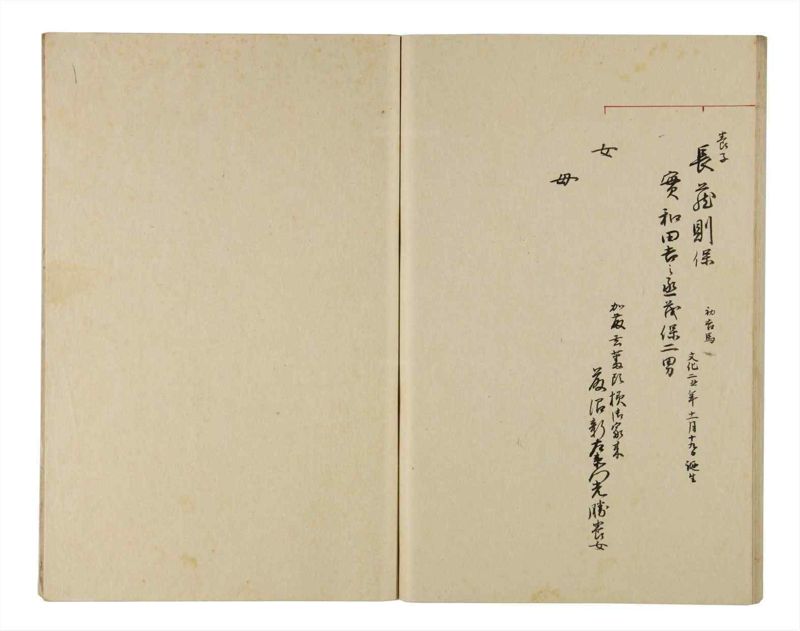 養子
長蔵則保
初右馬
文化二丑年十一月十九日誕生
實和田吉之丞茂保二男
女
母
加藤 様御家来
藤沼新左衛門光勝養女